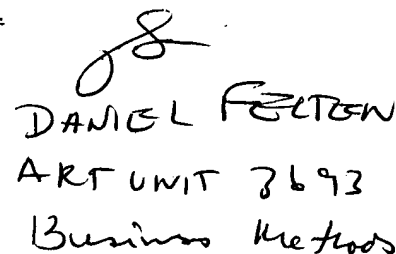 DANIEL FELTEN
ART UNIT 3693
Business Methods